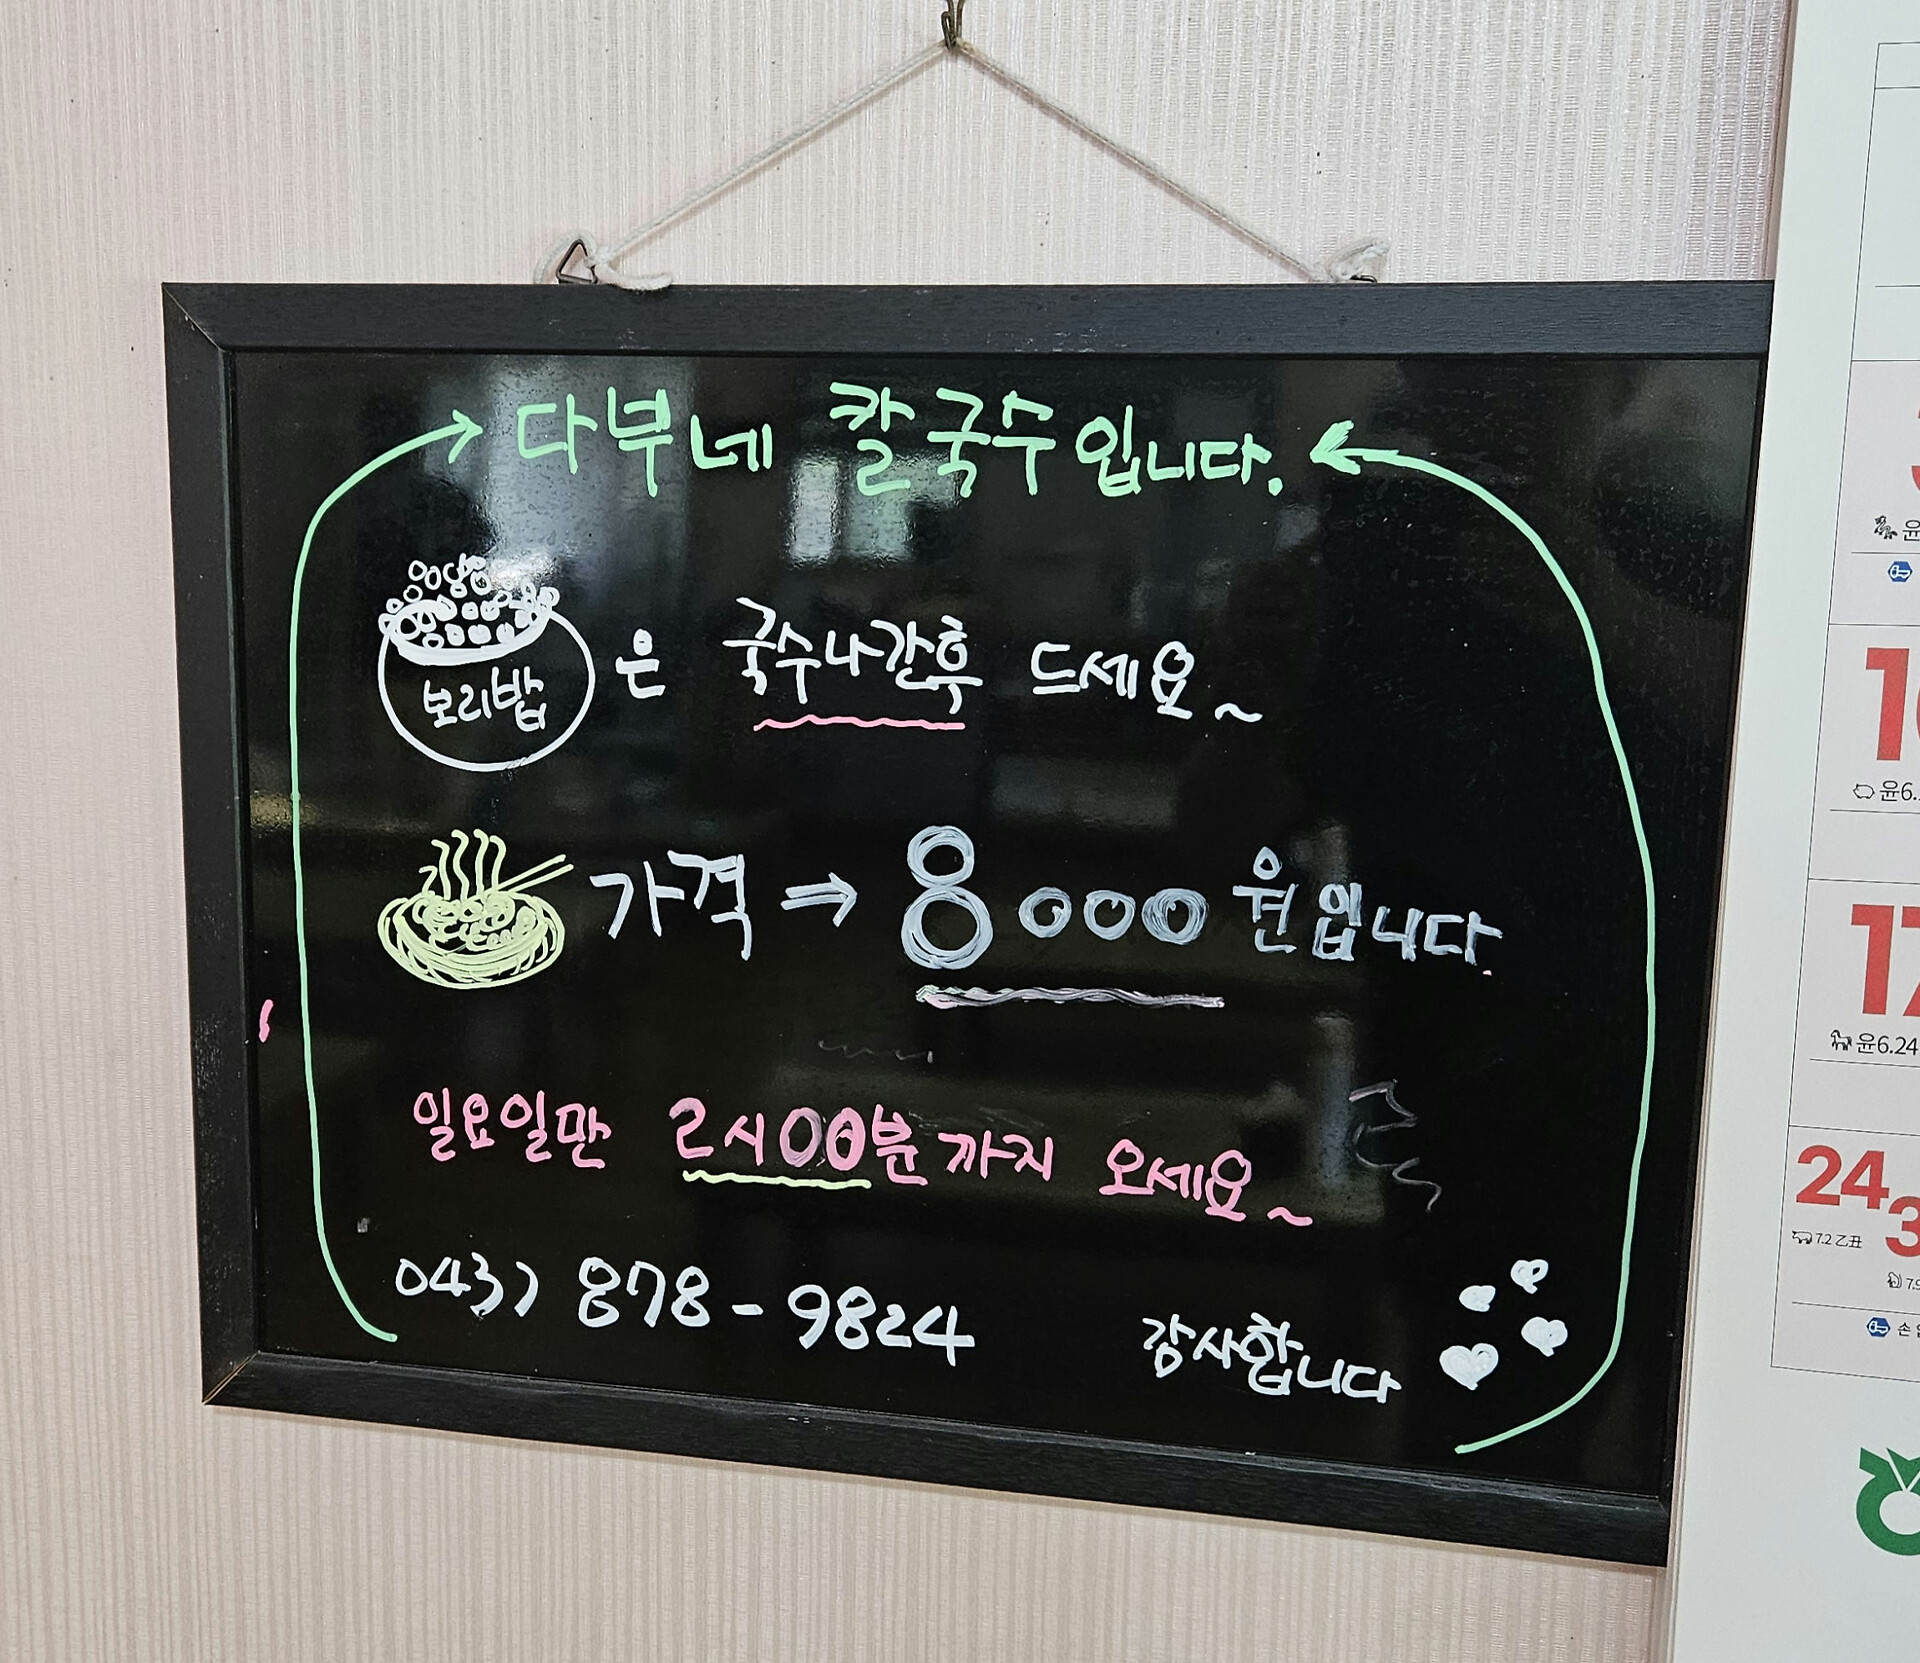 다부네 칼국수입니다.
보리밥은 국수나간후 드세요~
가격 ⇒ 8000원입니다.
일요일만 2시00분까지 오세요~
043) 878-9824
감사합니다
윤6.
17
윤6.24
24
7.2 乙丑
손